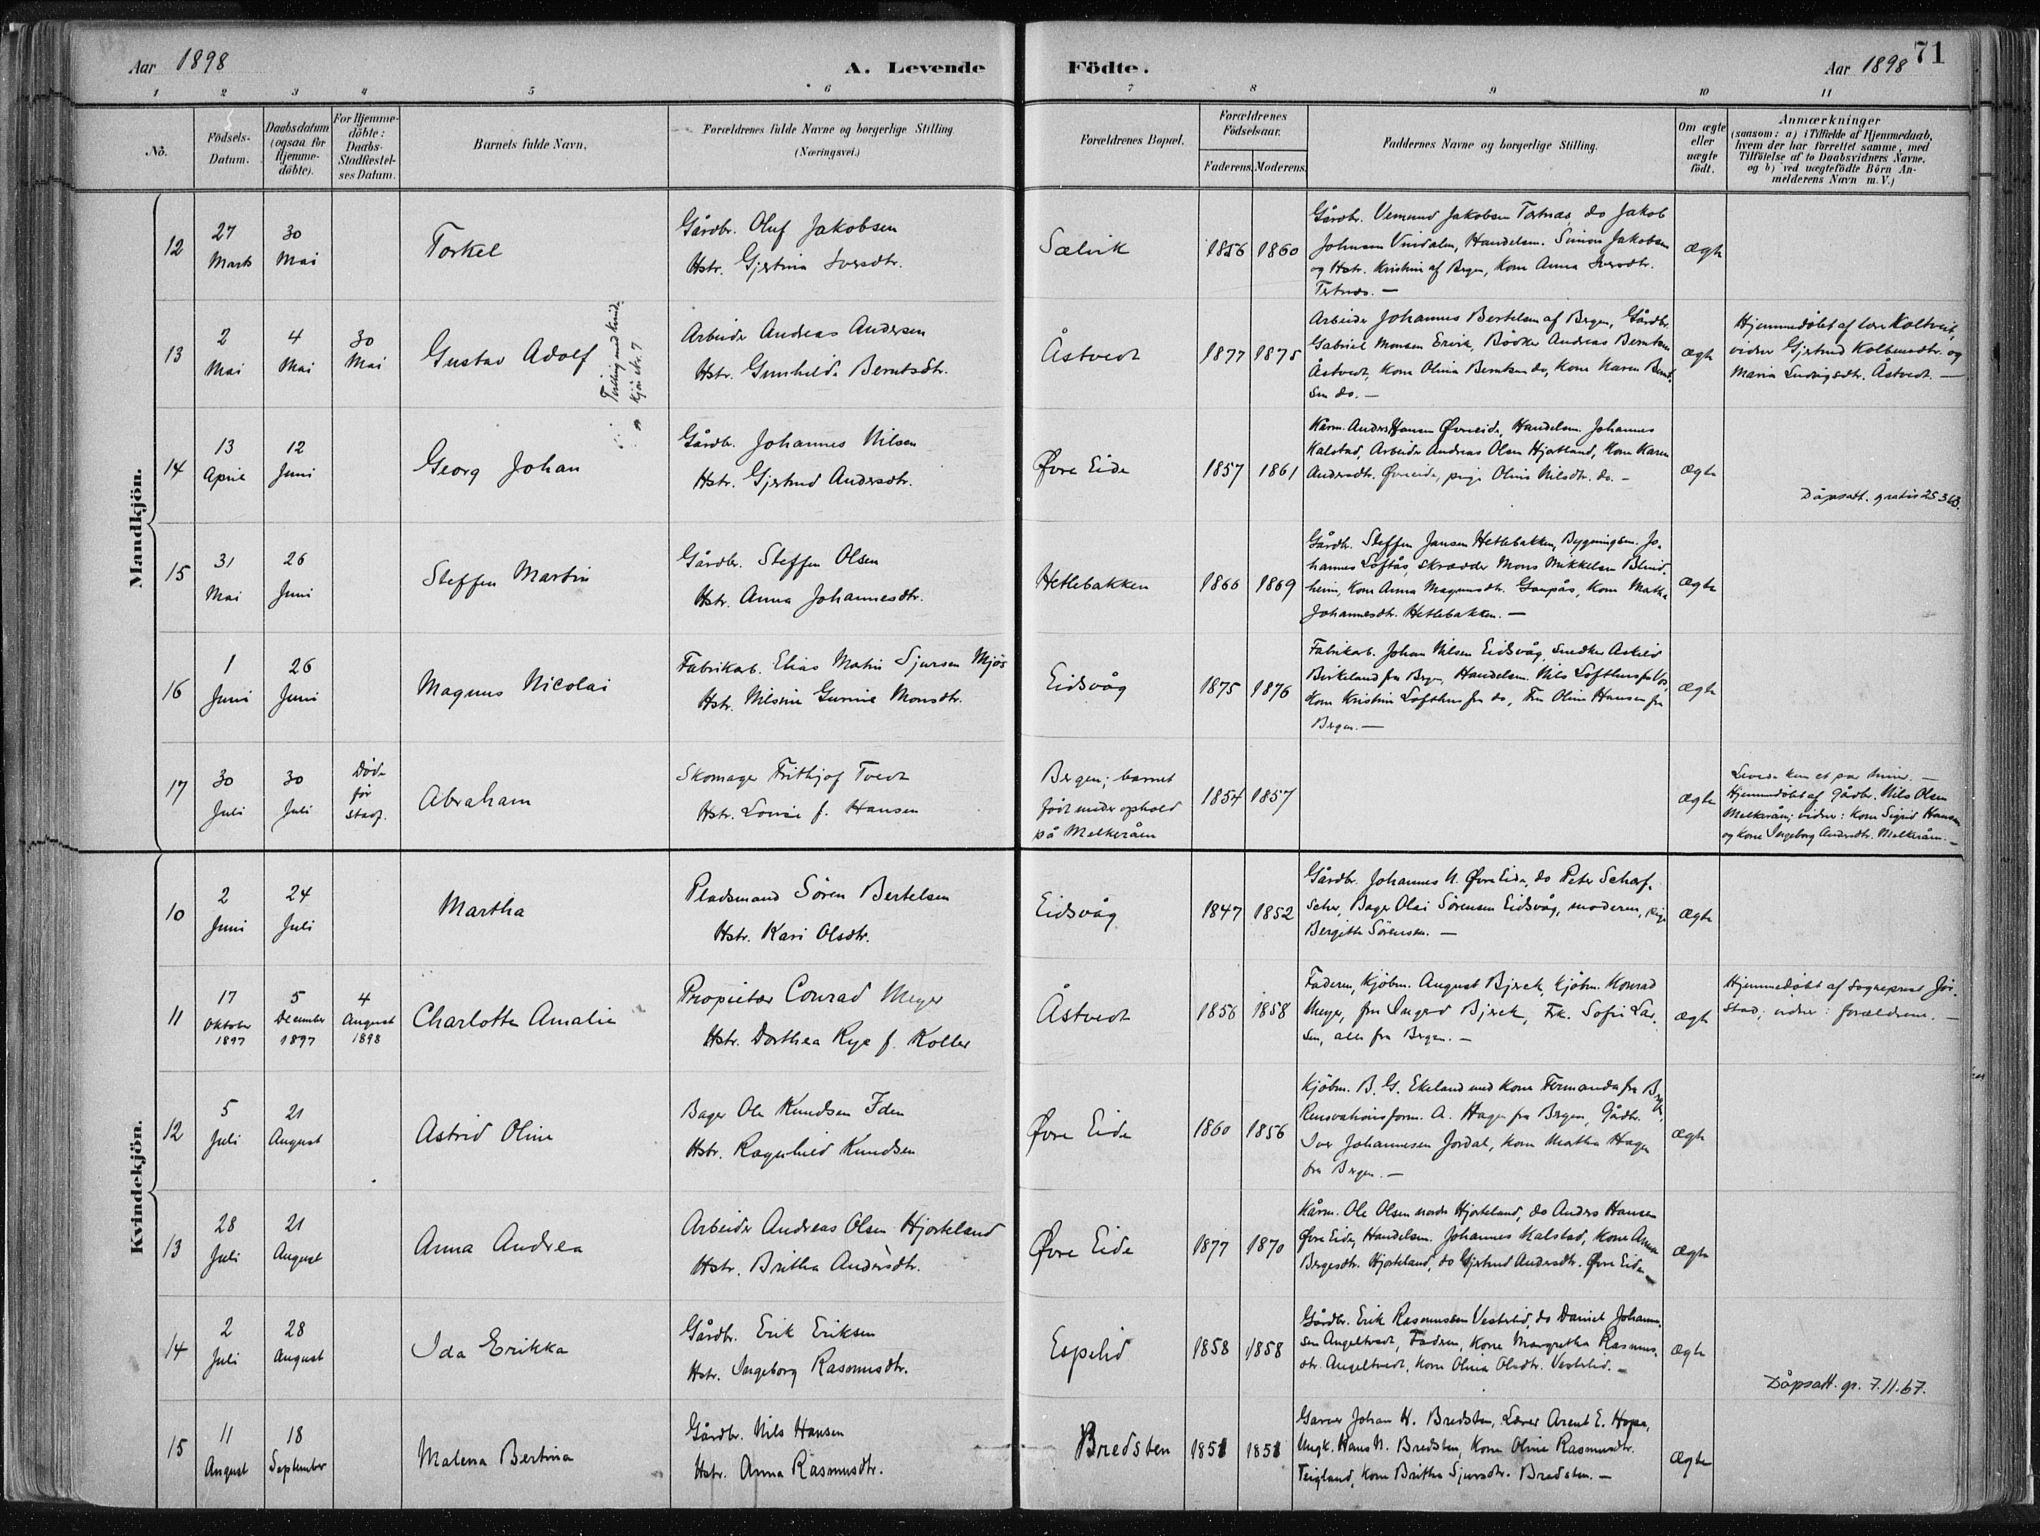 Aar 1898
A. Levende Födte.
Aar 1898
71
1 2 3 4 5 6 7 8 9 10 11
No.
Födsels-Datum.
Daabsdatum (ogsaa for Hjemme-döbte).
For Hjemme-döbte: Daabs-Stadfæstel-ses Datum.
Barnets fulde Navn.
Forældrenes fulde Navne og borgerlige Stilling (Næringsvei.)
Forældrenes Bopæl.
Forældrenes Födselsaar.
Faderens. Moderens.
Faddernes Navne og borgerlige Stilling.
Om ægte eller uægte födt.
Anmærkninger
(saasom: a) i Tilfælde af Hjemmedaab,
hvem der har forrettet samme, med
Tilföielse af to Daabsvidners Navne.
og b) ved uægtefödte Börn An-
melderens Navn m. V.)
Mandkjön.
12
27 Marts
30 Mai
Torkel
Gårdbr. Oluf Jakobsen
Hstr. Gjertina Iversdtr.
Sælvik
1856 1860
Gårdbr. Vemund Jakobsen Tertnæs, do Jakob
Johnsen Vindalen, Handelsm. Simon Jakobsen
og Hstr. Kristine af Bergen, Kone Anna Iversdtr.
Tertnæs. —
Ægte
13
2 Mai
4 Mai
30 Mai
Gustav Adolf
Tvilling med Kvinde-
kjön No. 7
Arbeider Andreas Andersen
Hstr. Gunhilde Berntsdtr.
Åstvedt
1877 1875
Arbeider Johannes Bertelsen af Bergen, Gårdbr.
Gabriel Monsen Ervik, Bødker Andreas Berntsen
Åstvedt, Kone Olina Berntsen do, Kone Karen Bernt-
sen do. —
Ægte
Hjemmedøbt af Lars Koltveit,
vidner Gjertrud Kolbensdtr. og
Maria Ludvigsdtr. Åstvedt. —
14
13 April
12 Juni
Georg Johan
Gårdbr. Johannes Nilsen
Hstr. Gjertrud Andersdtr.
Øvre Eide
1857 1861
Kårm. Anders Hansen Øvreeide, Handelsm. Johannes
Kalstad, Arbeider Andreas Olsen Hjortland, Kone Karen
Andersdtr. Øvreeide, pige Olina Nilsdtr. do. —
Ægte
Dåpsatt. gratis 25.3.63.
15
31 Mai
26 Juni
Steffen Martin
Gårdbr. Steffen Olsen
Hstr. Anna Johannesdtr.
Hetlebakken
1866 1869
Gårdbr. Steffen Jansen Hetlebakken, Bygningsm. Jo-
hannes Loftås, skrædder Mons Mikkelsen Blind-
heim, Kone Anna Magnusdtr. Gaupås, Kone Martha
Johannesdtr. Hetlebakken. —
Ægte
16
1 Juni
26 Juni
Magnus Nicolai
Fabrikarb. Elias Matin Sjursen Mjøs
Hstr. Nilsine Gurine Monsdtr.
Eidsvåg
1875 1876
Fabrikarb. Johan Nilsen Eidsvåg, Snedker Askild
Birkeland fra Bergen, Handelsm. Nils Lofthus fr. Vos,
Kone Kristine Lofthus fra do, Frk. Olina Hansen fra
Bergen. —
Ægte
17
30 Juli
30 Juli
Død før Stadf.
Abraham
Skomager Frithjof Tvedt
Hstr. Lovise f. Hansen
Bergen; barnet
født under ophold
på Melkeråen
1854 1857
Ægte
Levede kun et par timer. —
Hjemmedøbt af Gårdbr. Nils Olsen
Melkeråen; vidner: Kone Sigrid Hansen
og Kone Ingeborg Andersdtr. Melkeråen. —
Kvindekjön.
10
2 Juni
24 Juli
Martha
Pladsmand Søren Bertelsen
Hstr. Kari Olsdtr.
Eidsvåg
1847 1852
Gårdbr. Johannes N. Øvre Eide, do Peter Schaf-
scher, Bager Olai Sørensen Eidsvåg, moderen, pige
Bergitte Sørensen. —
Ægte
11
17 Oktober 1897
5 December 1897
4 August 1898
Charlotte Amalie
Proprietær Conrad Meyer
Hstr. Dorthea Rye f. Koller
Åstvedt
1856 1858
Faderen, Kjøbm. August Bjerck, Kjøbm. Konrad
Meyer, fru Ingrid Bjerck, Frk. Sofie Lar-
sen, alle fra Bergen. —
Ægte
Hjemmedøbt af Sogneprest Jør-
stad; vidner: forældrene. —
12
5 Juli
21 August
Astrid Oline
Bager Ole Knudsen Iden
Hstr. Ragnhild Knudsen
Øvre Eide
1860 1856
Kjøbm. B. G. Ekeland med Kone Fernanda fra Bergen,
Renovationsform. A. Hagen fra Bergen, Gårdbr.
Iver Johannesen Jordal, Kone Martha Hagen
fra Bergen. —
Ægte
13
28 Juli
21 August
Anna Andrea
Arbeider Andreas Olsen Hjorteland
Hstr. Britha Andersdtr.
Øvre Eide
1877 1870
Kårm. Ole Olsen nordr. Hjorteland, do Anders Hansen
Øvre Eide, Handelsm. Johannes Kalstad, Kone Anna
Bergesdtr. Hjorteland, do Gjertrud Andersdtr. Øvre Eide —
Ægte
14
2 Juli
28 August
Ida Erikka
Gårdbr. Erik Eriksen
Hstr. Ingeborg Rasmusdtr.
Espelid
1858 1858
Gårdbr. Erik Rasmussen Vestrlid, do Daniel Johann-
sen Angeltvedt, Fadren, Kone Margretha Rasmus-
dtr. Angeltvedt, Kone Olina Olsdtr. Vestrlid. —
Ægte
Dåpsatt. gr. 7.11.67.
15
11 August
18 September
Malena Bertina
Gårdbr. Nils Hansen
Hstr. Anna Rasmusdtr.
Bredsten
1851 1851
Garver Johan H. Bredsten, Lærer Arent E. Hope,
Ungk. Hans N. Bredsten, Kone Oline Rasmusdtr.
Teigland, Kone Britha Sjursdtr. Bredsten. —
Ægte